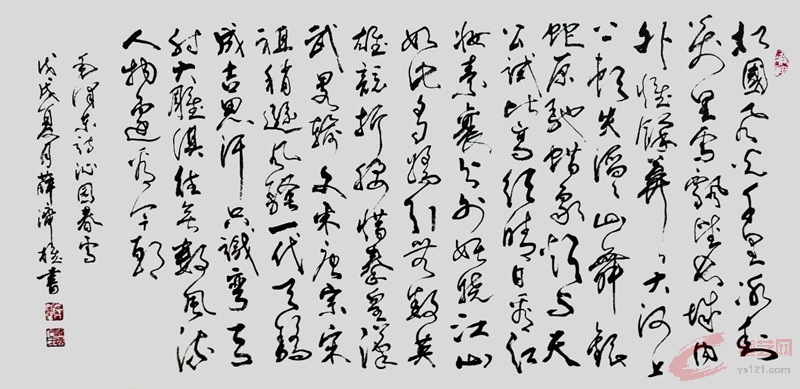 北國风光千里冰封
萬里雪飄望长城内
外惟餘莽々大河上
下顿失滔々山舞银
蛇原驰蜡象欲与天
公试比高须晴日看红
妆素裹分外妖娆江山
如此多娇引无数英
雄竞折腰惜秦皇漢
武畧输文采唐宗宋
祖稍逊风骚一代天骄
成吉思汗只識弯弓
射大雕俱往矣数风流
人物還看今朝
毛泽东詩沁园春雪
戊戌夏月薛書
艺网
ys121.com